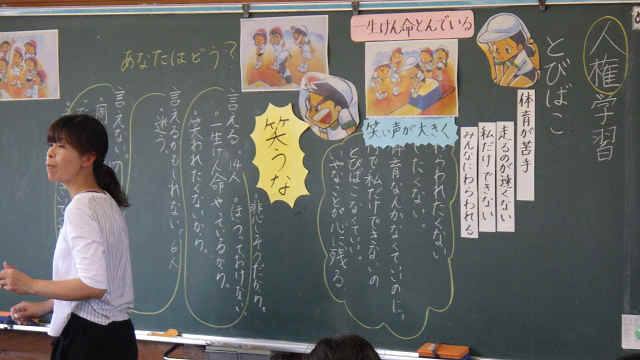 人権学習
とびばこ
体育が苦手
走るのが速くない
私だけできない
みんなにわらわれる
一生けん命とんでいる
笑い声が大きく
わらわれたくない
したくない。
体育なんかなくていいのに。
で私だけできないの
とびばこなくていい。
いやなことが心に残る
笑うな
あなたはどう?
言える
一生けん命やっているから。
笑われたくないから。
ほっておけない。
悲しそうだから。
言えるかもしれない。6人
迷う。
言えない。